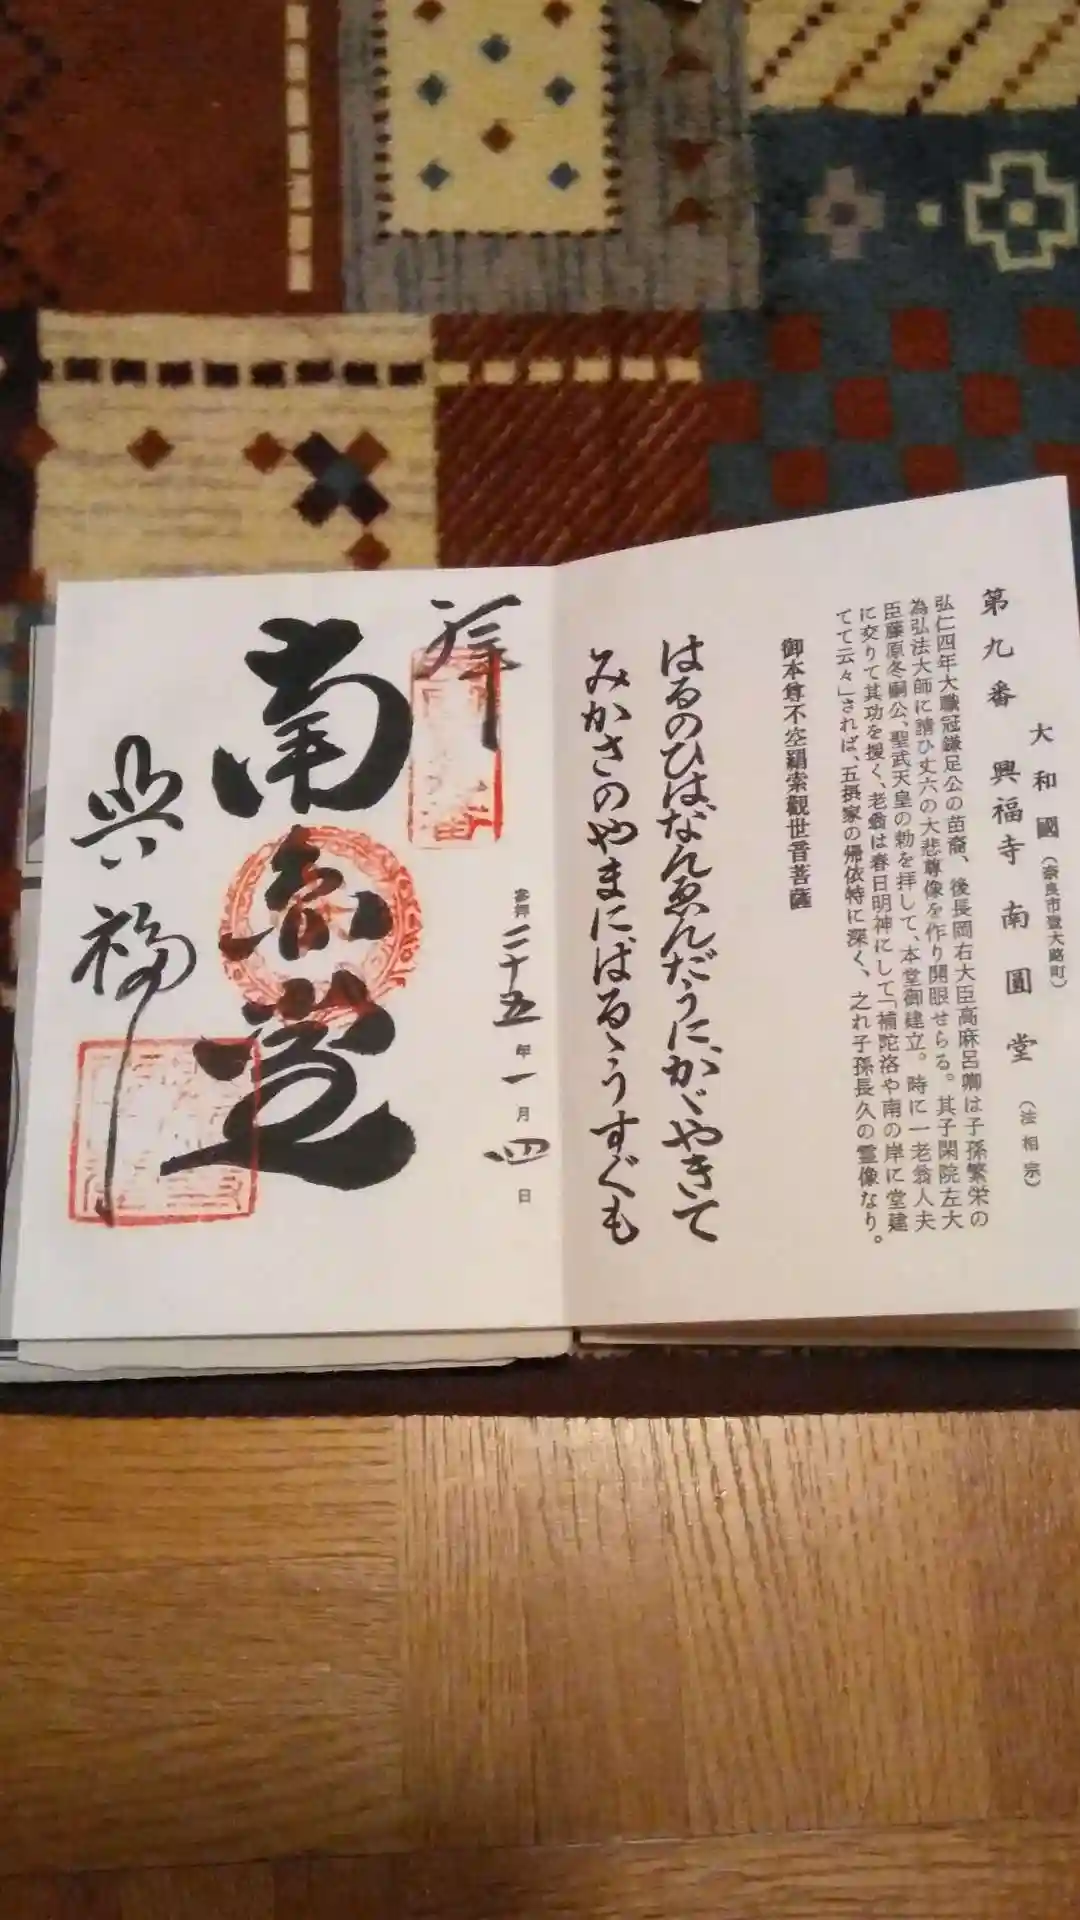 大和國(奈良市登大路町)
第九番 興福寺 南圓堂 (法相宗)
弘仁四年大職冠鎌足公の苗裔、後長岡右大臣高麻呂卿は子孫繁栄の
為弘法大師に請ひ丈六の大悲尊像を作り開眼せらる。其子閑院左大
臣藤原冬嗣公、聖武天皇の勅を拝して、本堂御建立。時に一老翁人夫
に交りて其功を援く、老翁は春日明神にして「補陀洛や南の岸に堂建
てて云々」されば、五摂家の帰依特に深く、之れ子孫長久の霊像なり。
御本尊不空羂索観世音菩薩
はるのひはなんゑんだうにかゞやきて
みかさのやまにはるゝうすぐも
拝
参拝 二十五年一月四日
南円堂
興福寺